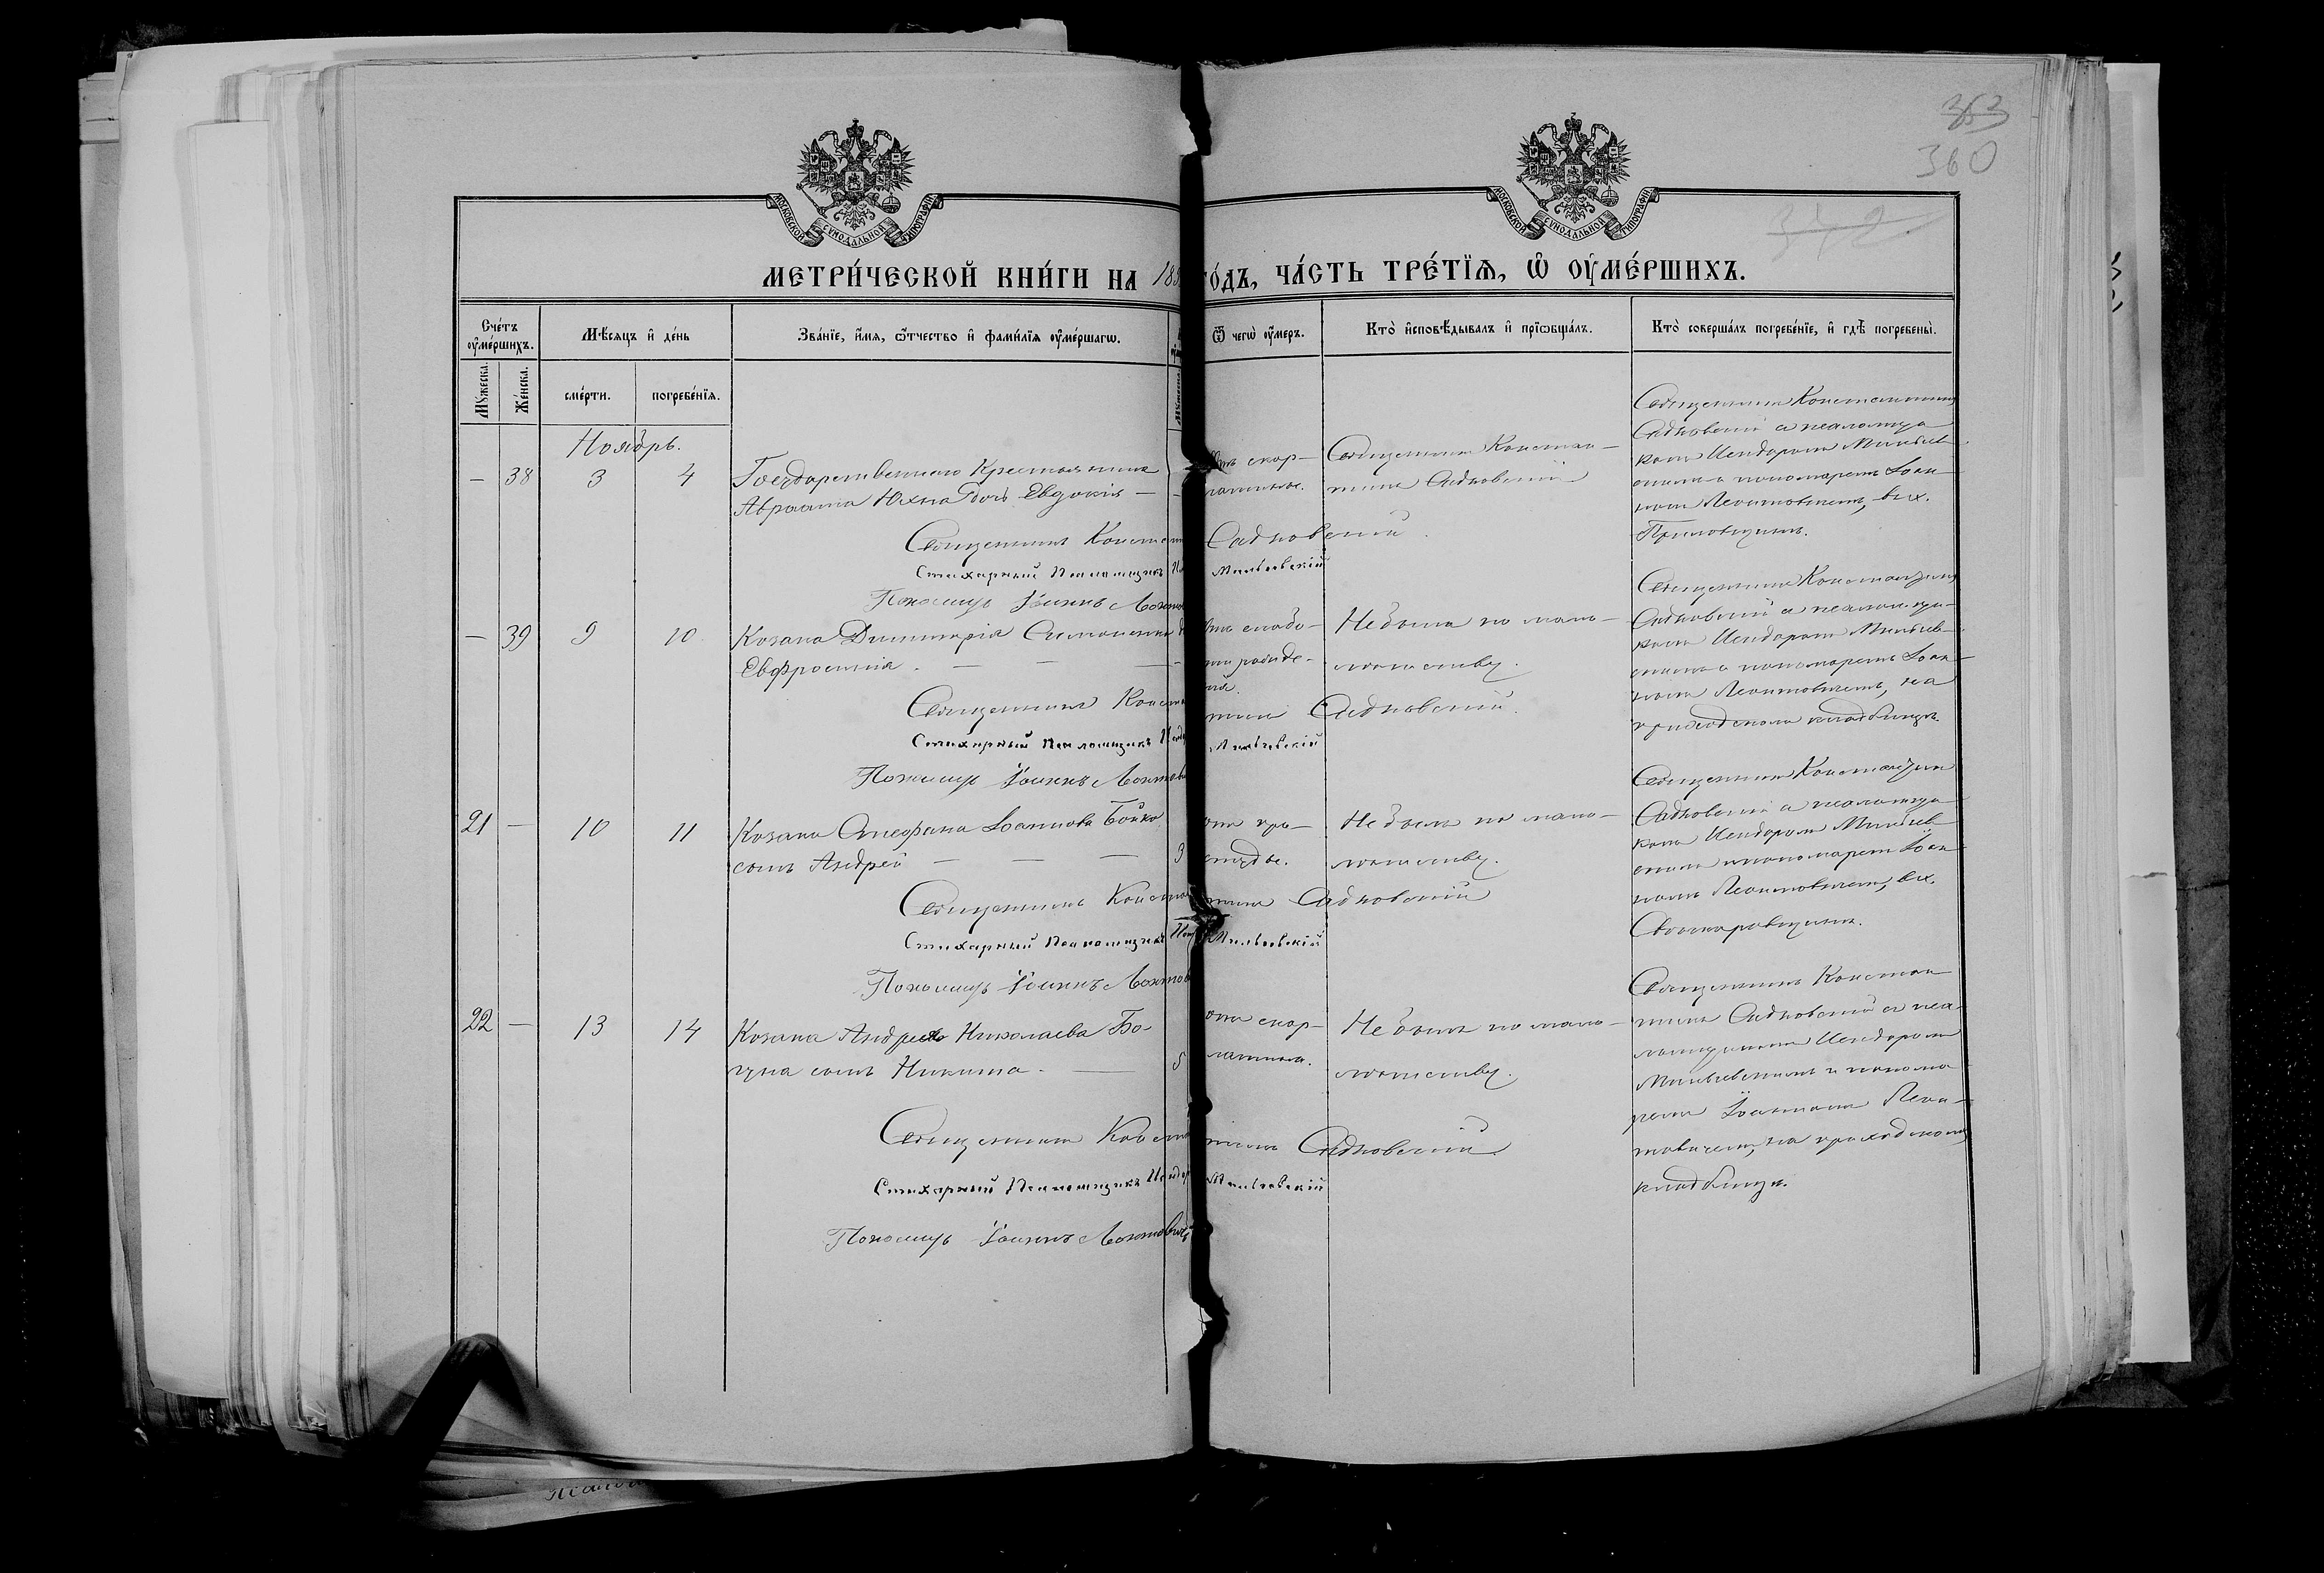 353
360
342
МОСКОВСКОЙ СѴНОДАЛЬНОЙ ТИПОГРАФІИ
МОСКОВСКОЙ СѴНОДАЛЬНОЙ ТИПОГРАФІИ
МЕТРИ́ЧЕСКОЙ КНИ́ГИ НА 188 ГО́ДЪ, ЧА́СТЬ ТРЕ́ТЇѦ, Ѡ҆ ОУ҆МЕ́РШИХЪ.
Сче́тъ оу҆ме́ршихъ.
Мѣ́сяцъ и҆ де́нь
Зва́нїе, и҆́мя, ѻ҆́тчество и҆ фами́лїя оу҆ме́ршагѡ.
Ѿ чегѡ̀ оу҆́меръ.
Кто̀ и҆сповѣ́дывалъ и҆ прїѡбща́лъ.
Кто̀ соверша́лъ погребе́нїе, и҆ гдѣ̀ погребены̀.
Мꙋ́жеска.
Же́нска.
сме́рти.
погребе́нїя.
Ноябрь.
— 38 3 4
Государственнаго Крестьянина
Авраама Юхна дочь Евдокія —
Отъ скар-
латины.
Священникъ Констан-
тинъ Садковскій
Священникъ Константинъ
Садковскій съ псаломщи-
комъ Исидоромъ Мильев-
скимъ и пономаремъ Іоан-
номъ Леонтовичемъ, въ х.
Священникъ Конст Садковскій.
Стихарный Псаломщикъ Мильевскій
Пономарь Іоаннъ Леонто
— 39 9 10
Козака Димитрія Симоненка д
Евфросинія. — — —
отъ слабо-
сти рожде-
нія.
Не была по мало-
лѣтству.
Священникъ Константинъ
Садковскій съ псаломщи-
комъ Исидоромъ Мильев-
скимъ и пономаремъ Іоан-
номъ Леонтовичемъ, на
приходскомъ кладбищѣ.
Священникъ Константинъ Садковскій.
Стихарный Псаломщикъ Исид Мильевскій
Пономарь Іоаннъ Леонтов
21 — 10 11
Козака Стефана Іоаннова Бойко
сынъ Андрей — — — 3
отъ про-
студы.
Не былъ по мало-
лѣтству.
Священникъ Константинъ
Садковскій съ псаломщи-
комъ Исидоромъ Мильев-
скимъ и пономаремъ Іоан-
номъ Леонтовичемъ, въ х.
Священникъ Константинъ Садковскій
Стихарный Псаломщикъ Исид Мильевскій
Пономарь Іоаннъ Леонтов
22 — 13 14
Козака Андрея Николаева Бо-
гуна сынъ Никита. — 5
отъ скар-
латины.
Не былъ по мало-
лѣтству.
Священникъ Констан-
тинъ Садковскій съ пса-
ломщикомъ Исидоромъ
Мильевскимъ и понома-
ремъ Іоанномъ Леон-
товичемъ, на приходскомъ
кладбищѣ.
Священникъ Константинъ Садковскій.
Стихарный Псаломщикъ Исидор Мильевскій
Пономарь Іоаннъ Леонтовичъ